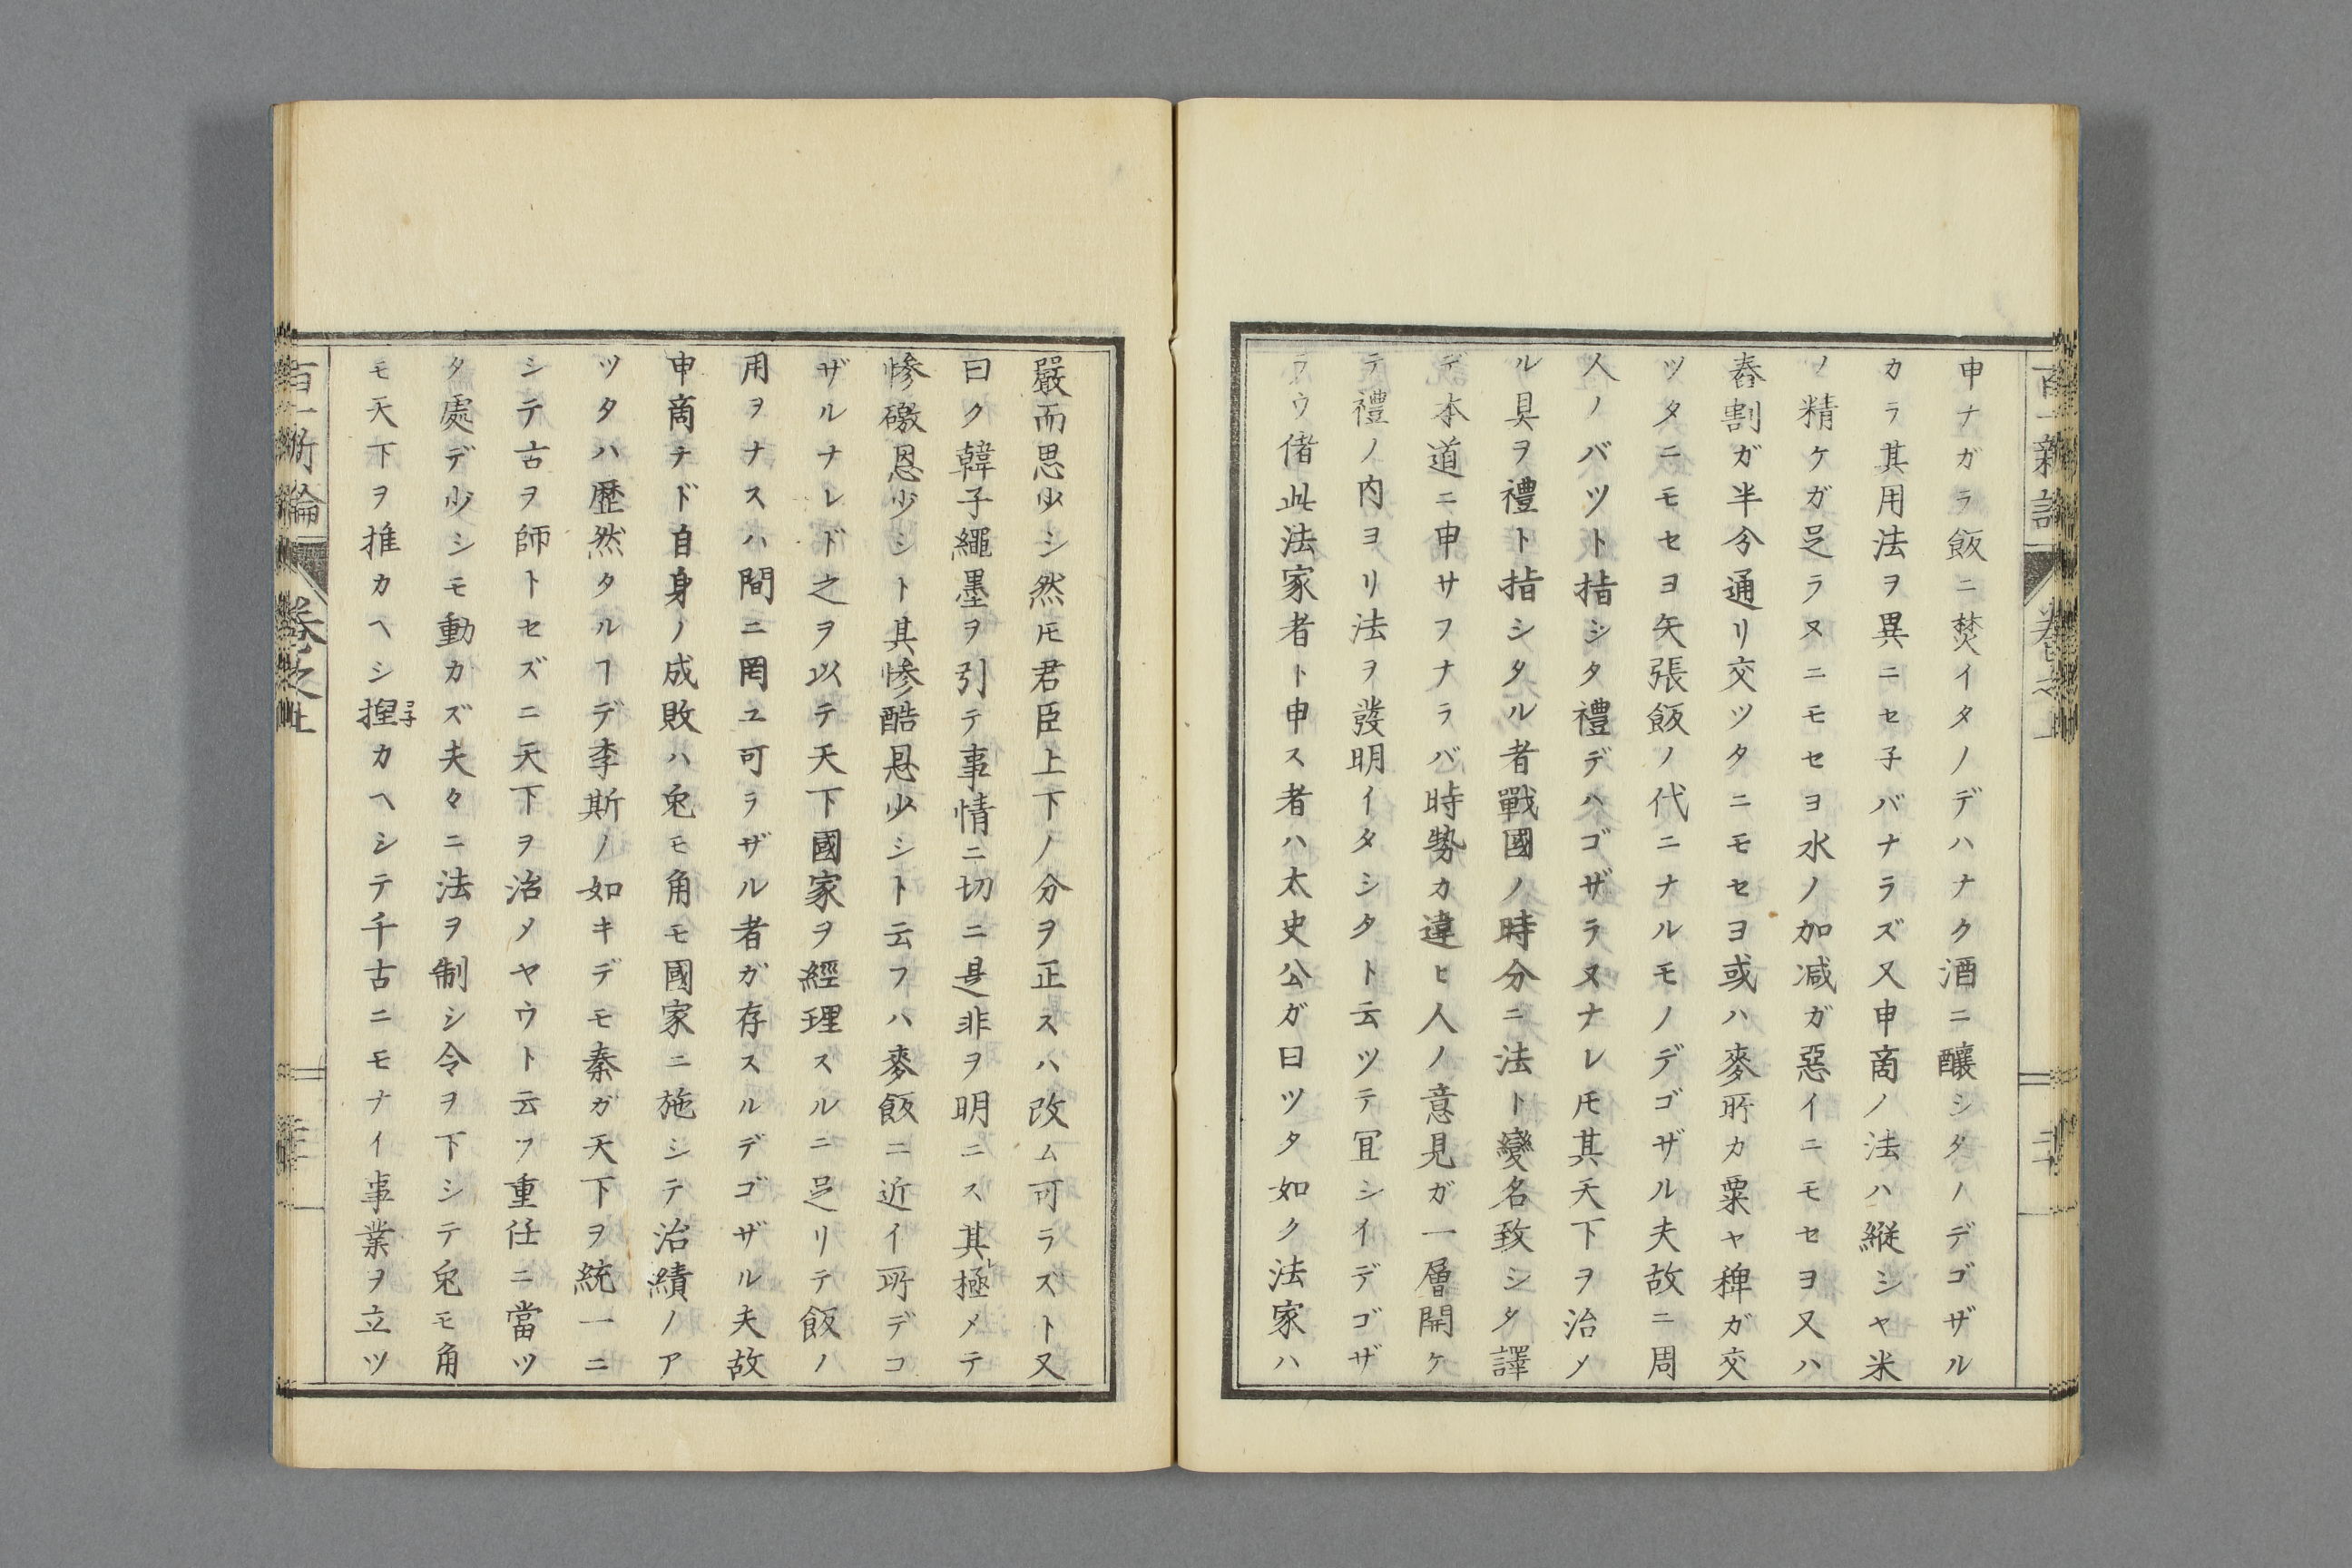 申ナガラ飯ニ焚イタノデハナク酒ニ釀シタノデゴザル
カラ其用法ヲ異ニセ子バナラズ又申商ノ法ハ縦シヤ米
ノ精ケガ足ラヌニモセヨ水ノ加減ガ惡イニモセヨ又ハ
舂割ガ半分通リ交ツタニモセヨ或ハ麥所カ粟ヤ稗ガ交
ツタニモセヨ矢張飯ノ代ニナルモノデゴザル夫故ニ周
人ノバツト指シタ禮デハゴザラヌナレ𪜈其天下ヲ治メ
ル具ヲ禮ト指シタル者戰國ノ時分ニ法ト變名致シタ譯
デ本道ニ申サフナラバ時勢カ違ヒ人ノ意見ガ一層開ケ
テ禮ノ内ヨリ法ヲ發明イタシタト云ツテ冝シイデゴザ
ラウ偖此法家者ト申ス者ハ太史公ガ曰ツタ如ク法家ハ
百一新論 卷之上 二十
嚴而思少シ然𪜈君臣上下ノ分ヲ正スハ改ム可ラズト又
曰ク韓子繩墨ヲ引テ事情ニ切ニ是非ヲ明ニス其極メテ
慘礉恩少シト其慘酷恩少シト云フハ麥飯ニ近イ所デコ
ザルナレド之ヲ以テ天下國家ヲ經理スルニ足リテ飯ノ
用ヲナスハ間ニ罔ユ可ラザル者ガ存スルデゴザル夫故
申商チド自身ノ成敗ハ兎モ角モ國家ニ施シテ治績ノア
ツタハ歴然タルヿデ李斯ノ如キデモ秦ガ天下ヲ統一ニ
シテ古ヲ師トセズニ天下ヲ治メヤウト云フ重任ニ當ツ
タ處デ少シモ動カズ夫々ニ法ヲ制シ令ヲ下シテ兎モ角
モ天下ヲ推カヘシ捏カヘシテ千古ニモナイ事業ヲ立ツ
百一新論 卷之上